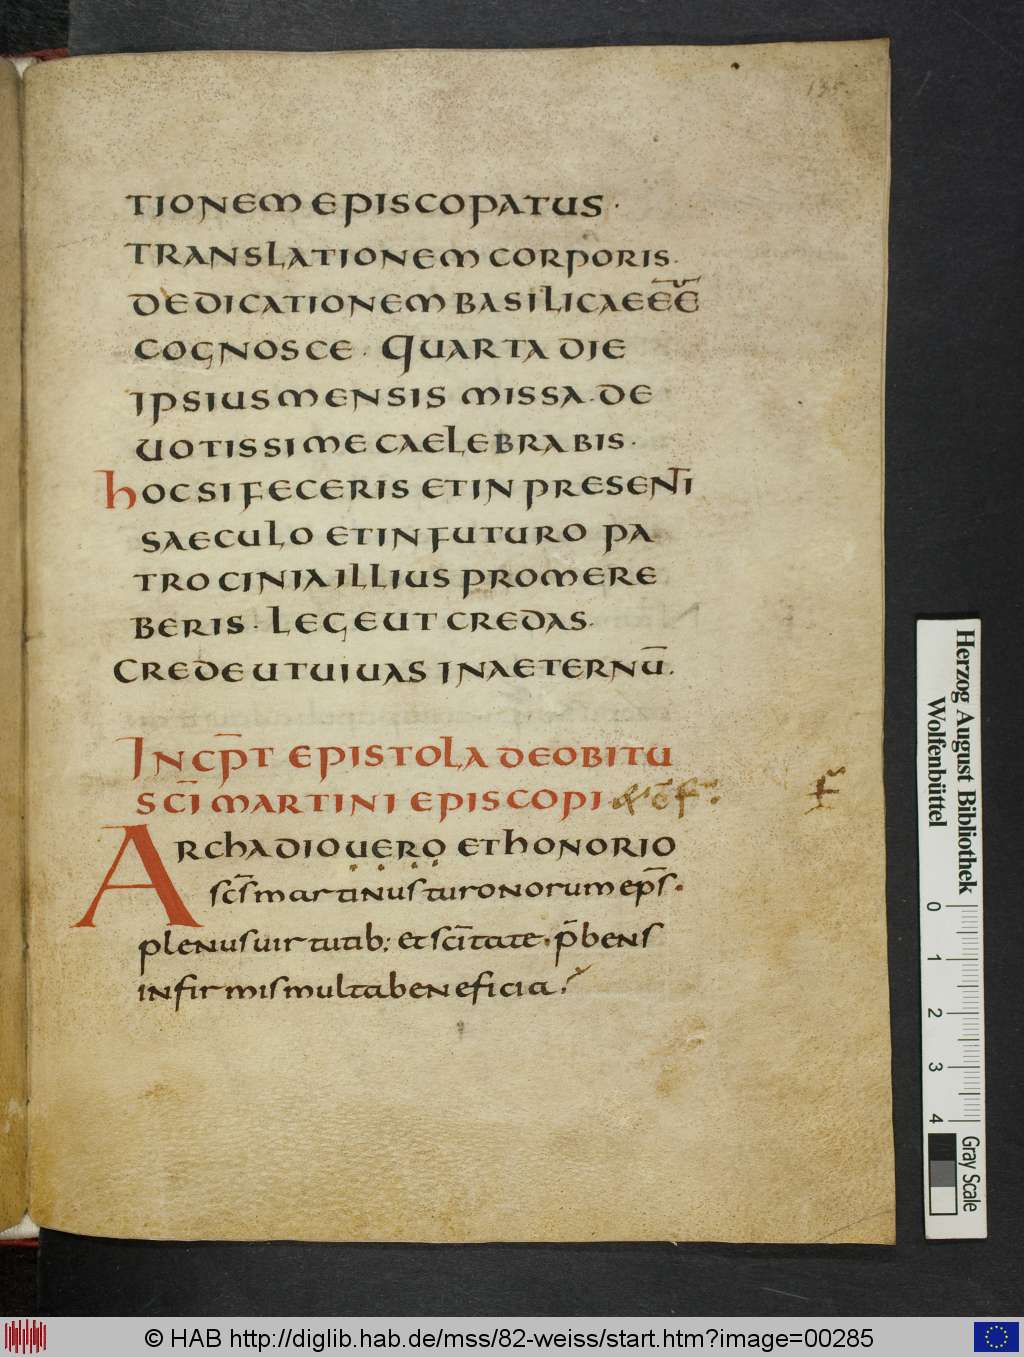 135.
TIONEM EPISCOPATUS ·
TRANSLATIONEM CORPORIS ·
DEDICATIONEM BASILICAE EE̅
COGNOSCE · QUARTA DIE
IPSIUS MENSIS MISSA · DE
UOTISSIME CAELEBRABIS ·
hOC SI FECERIS ET IN PRESENTI
SAECULO ET IN FUTURO PA
TROCINIA ILLIUS PROMERE
BERIS · LEGE UT CREDAS ·
CREDE UT UIUAS IN AETERNU̅ .
INCP̅T EPISTOLA DE OBITU
SCI̅ MARTINI EPISCOPI
ARChADIO UERO ET hONORIO
sc̅s martinus turonorum ep̅s ·
plenus uirtutib; et sci̅tate · p̅bens
infirmis multa beneficia
Herzog August Bibliothek
Wolfenbüttel
0 1 2 3 4
Gray Scale
© HAB http://diglib.hab.de/mss/82-weiss/start.htm?image=00285